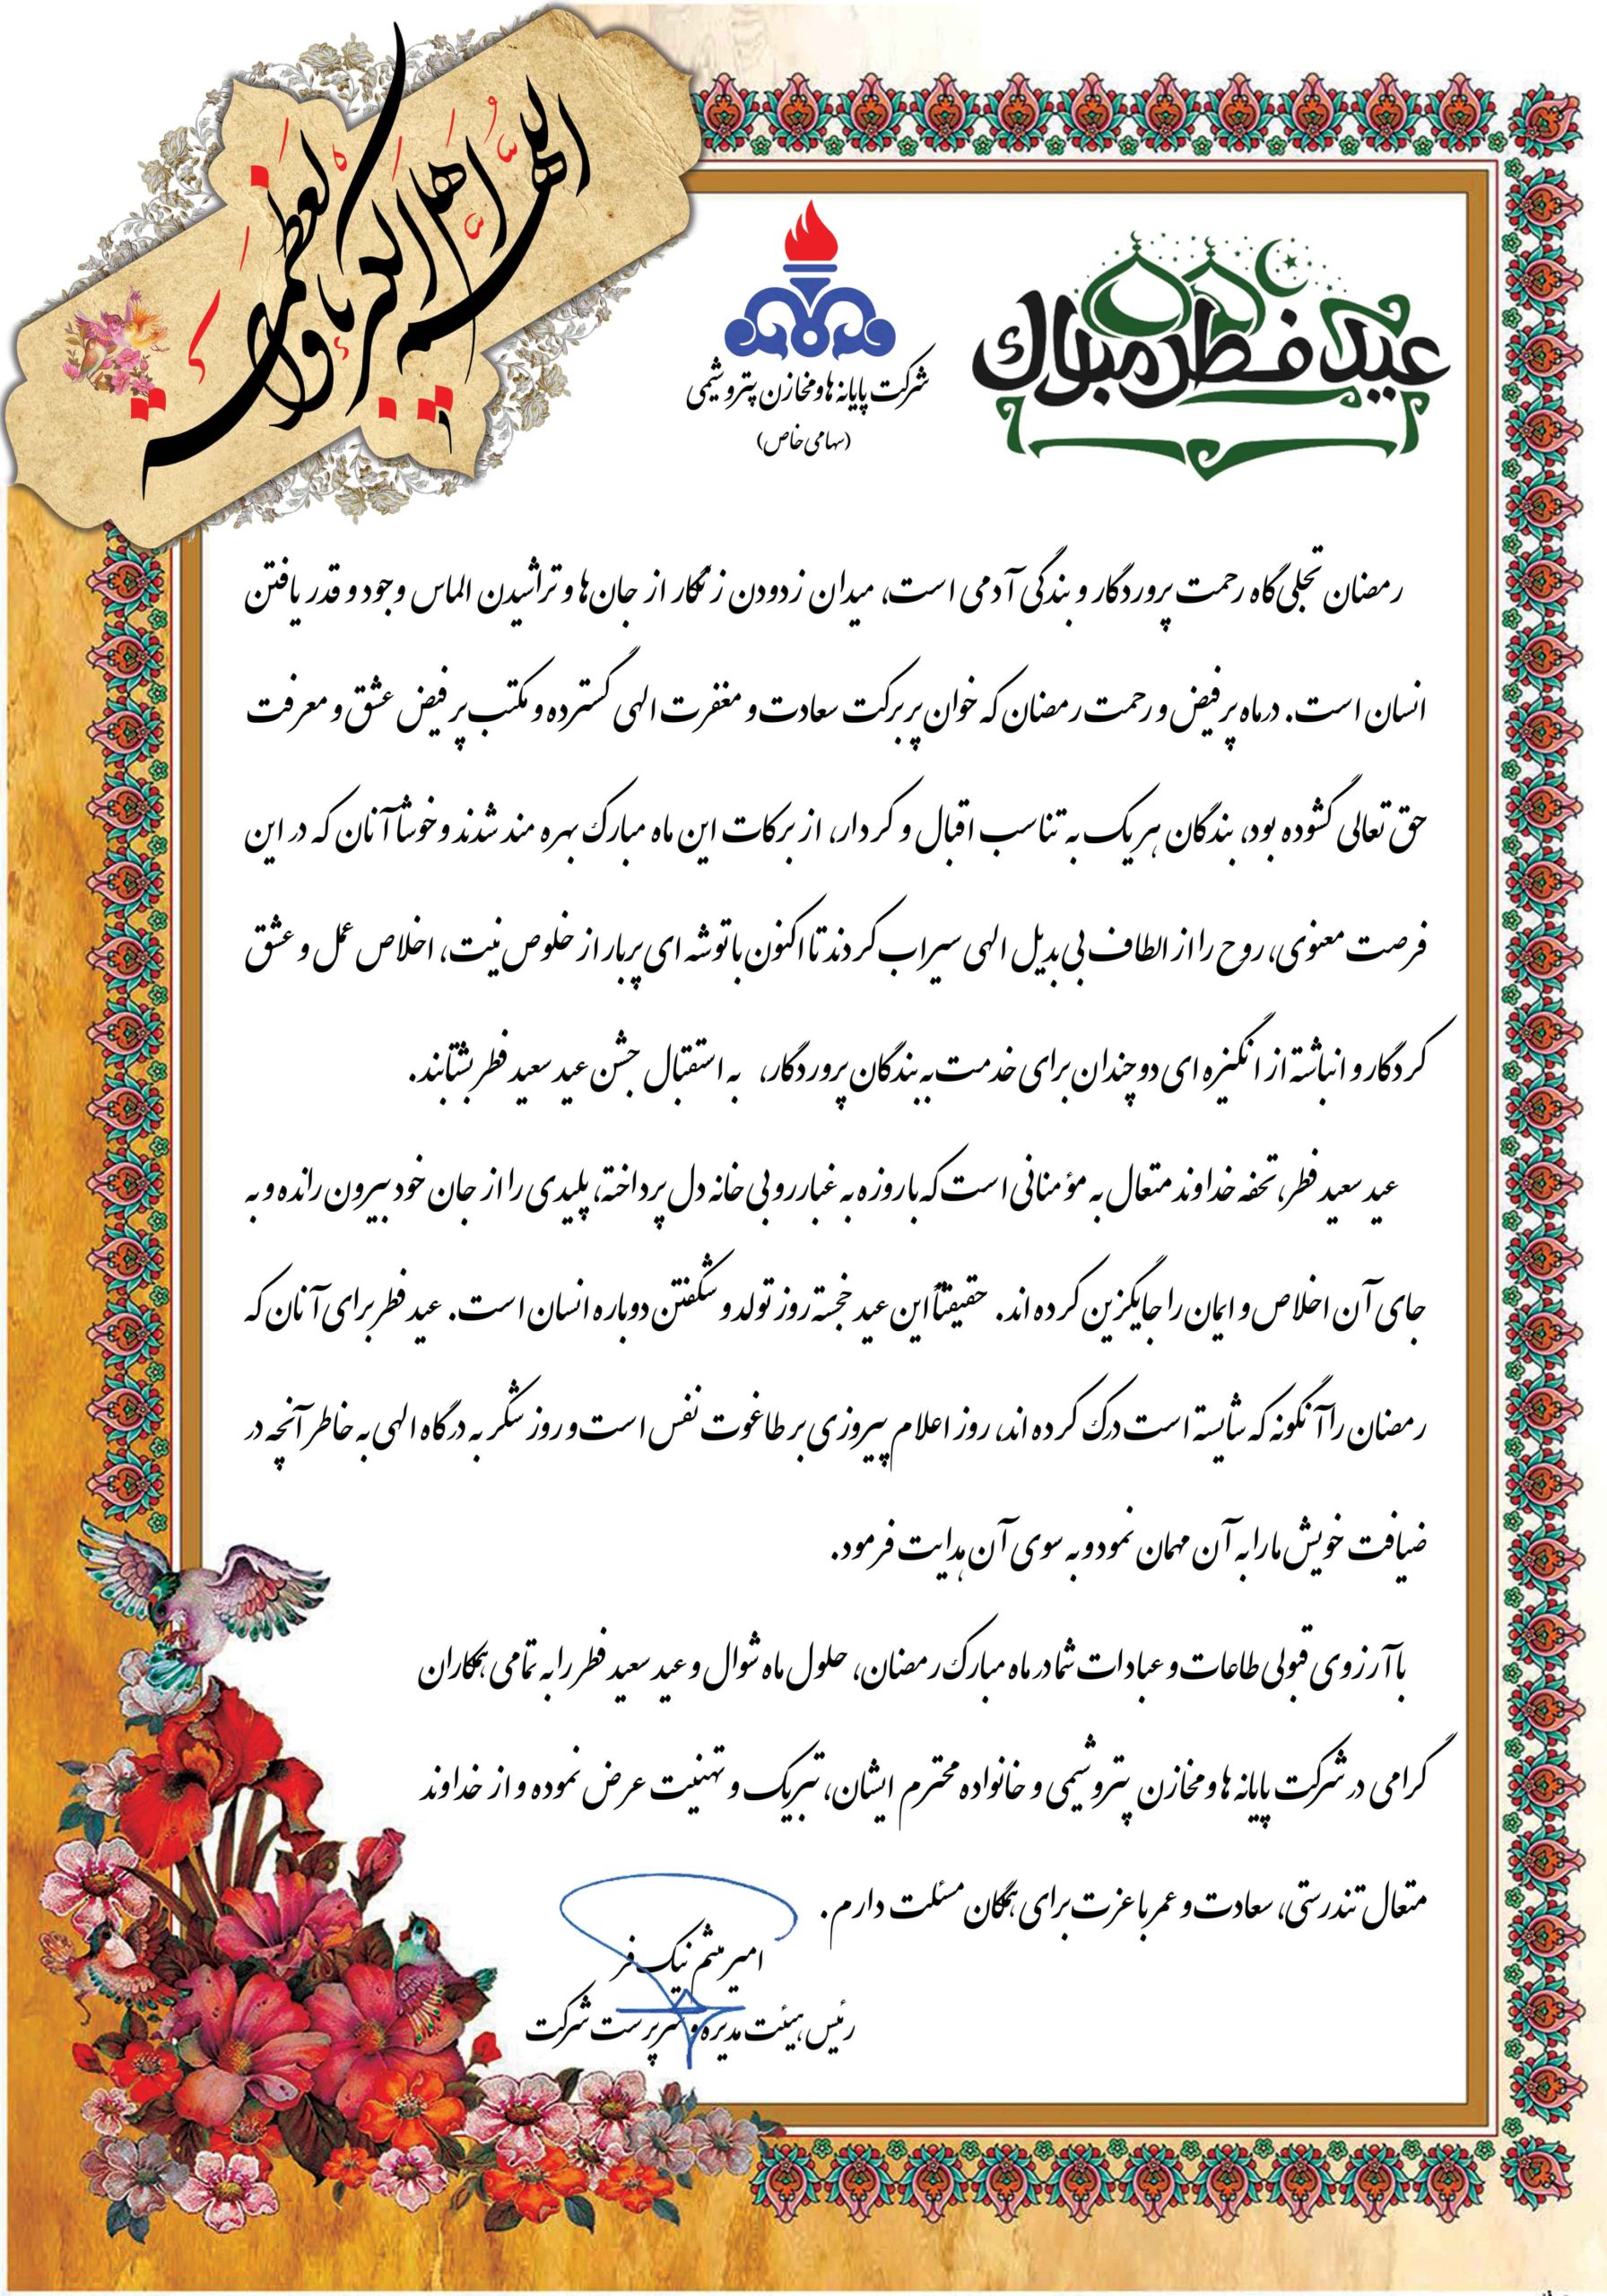 اللهم اهل الکبریاء والعظمة
عید فطر مبارک
شرکت پایانه ها و مخازن پتروشیمی
(سهامی خاص)
رمضان تجلی گاه رحمت پروردگار و بندگی آدمی است، میدان زدودن زنگار از جان ها و تراشیدن الماس وجود و قدر یافتن
انسان است. در ماه پر فیض و رحمت رمضان که خوان پر برکت سعادت و مغفرت الهی گسترده و مکتب پر فیض عشق و معرفت
حق تعالی گشوده بود، بندگان هر یک به تناسب اقبال و کردار، از برکات این ماه مبارک بهره مند شدند و خوشا آنان که در این
فرصت معنوی، روح را از الطاف بی بدیل الهی سیراب کردند تا اکنون با توشه ای پربار از خلوص نیت، اخلاص عمل و عشق
کردگار و انباشته از انگیزه ای دوچندان برای خدمت به بندگان پروردگار، به استقبال جشن عید سعید فطر بشتابند.
عید سعید فطر، تحفه خداوند متعال به مؤمنانی است که با روزه به غبارروبی خانه دل پرداخته، پلیدی را از جان خود بیرون رانده و به
جای آن اخلاص و ایمان را جایگزین کرده اند. حقیقتاً این عید خجسته روز تولد و شکفتن دوباره انسان است. عید فطر برای آنان که
رمضان را آنگونه که شایسته است درک کرده اند، روز اعلام پیروزی بر طاغوت نفس است و روز شکر به درگاه الهی به خاطر آنچه در
ضیافت خویش ما را به آن مهمان نمود و به سوی آن هدایت فرمود.
با آرزوی قبولی طاعات و عبادات شما در ماه مبارک رمضان، حلول ماه شوال و عید سعید فطر را به تمامی همکاران
گرامی در شرکت پایانه ها و مخازن پتروشیمی و خانواده محترم ایشان، تبریک و تهنیت عرض نموده و از خداوند
متعال تندرستی، سعادت و عمر با عزت برای همگان مسئلت دارم.
امیر میثم نیک فر
رئیس هیئت مدیره و سرپرست شرکت